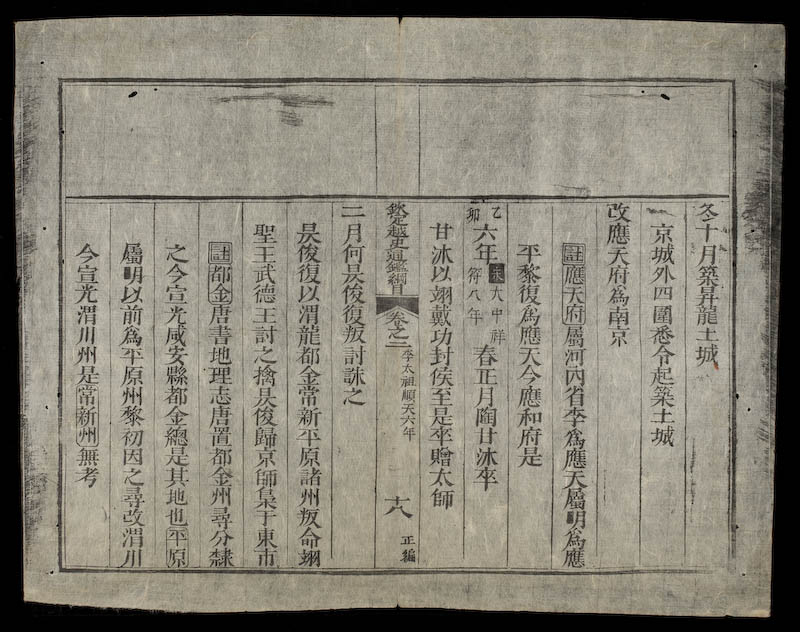 冬十月築昇龍土城
京城外四圍悉令起築土城
改應天府爲南京
註應天府屬河內省李爲應天屬明爲應
平黎復爲應天今應和府是
乙卯六年宋大中祥符八年春正月陶甘沐卒
甘沐以翊戴功封侯至是卒贈太師
欽定越史通鑑綱目 卷之二 李太祖順天六年 十八 正編
二月何㫤俊復叛討誅之
㫤俊復以渭龍都金常新平原諸州叛命翊
聖王武德王討之擒㫤俊歸京師梟于東市
註都金唐書地理志唐置都金州尋分隸
之今宣光咸安縣都金總是其地也平原
屬明以前爲平原州黎初因之尋改渭川
今宣光渭川州是常新州無考